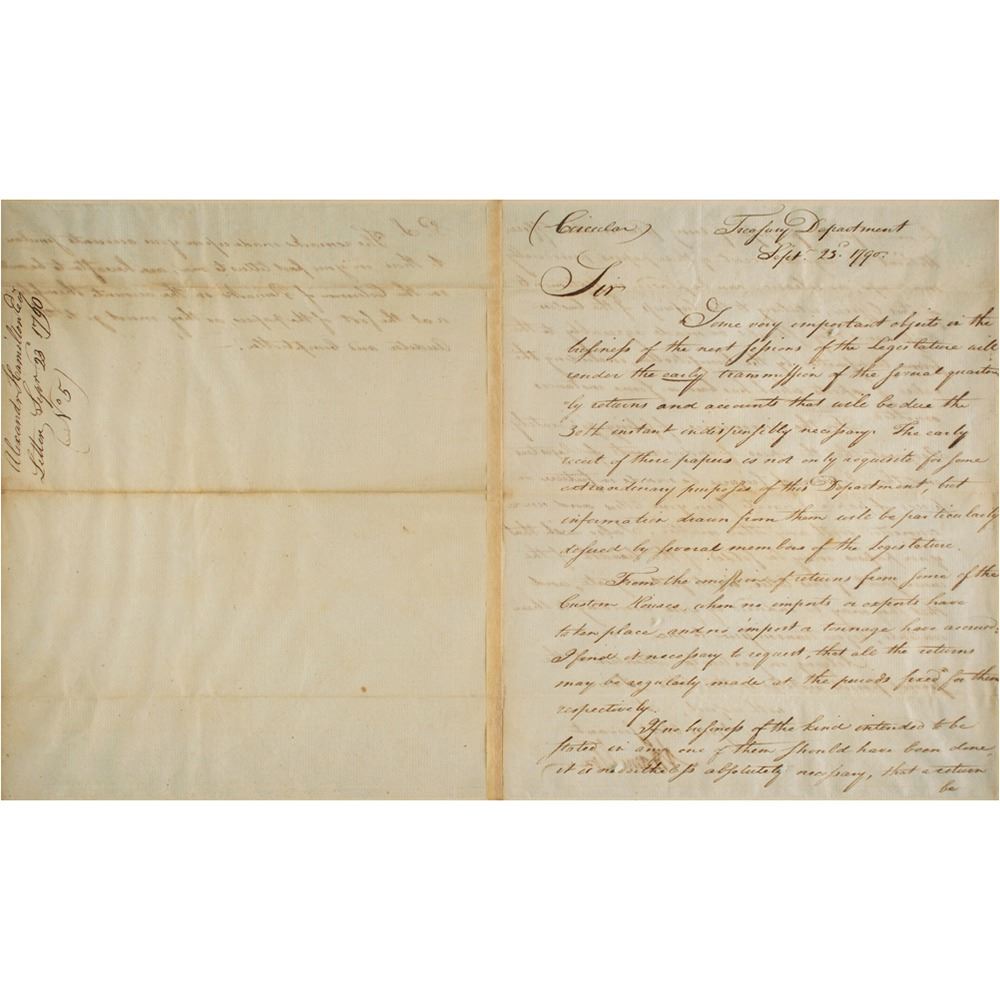 Alexandr. Hamillton Esqr
Letter Sepr. 23 1790
(No 5)
(Circular)
Treasury Department
Septr. 23d. 1790.
Sir
Some very important objects in the
business of the next sessions of the Legislature will
render the early transmission of the several quarter
ly returns and accounts that will be due the
30th instant indispensibly necessary. The early
receit of these papers is not only requisite for some
extraordinary purposes of this Department, but
information drawn from them will be particularly
desired by several members of the Legislature.
From the omission of returns from some of the
Custom Houses, when no imports or exports have
taken place, and no impost or tonnage have accrued
I find it necessary to request, that all the returns
may be regularly made at the periods fixed for them
respectively.
If no business of the kind intended to be
stated in any one of them should have been done,
it is nevertheless absolutely necessary, that a return
be